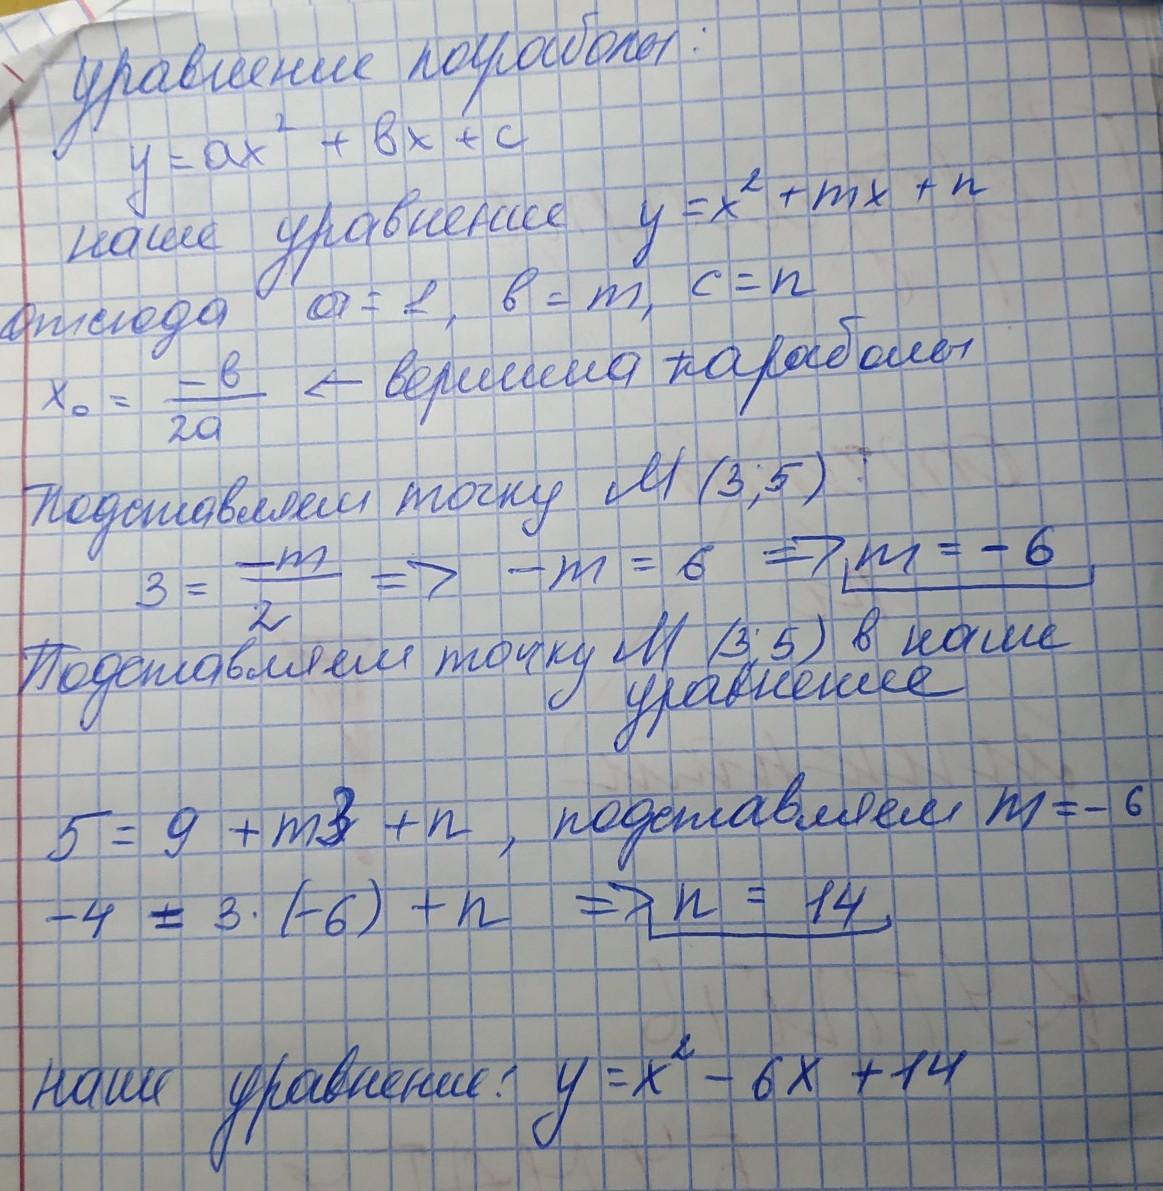 уравнение параболы:
y = ax² + bx + c
наше уравнение y = x² + mx + n
отсюда a = 1, b = m, c = n
x₀ = -b/2a ← вершина параболы
Подставляем точку M (3;5):
3 = -m/2 => -m = 6 => m = -6
Подставляем точку M (3;5) в наше
уравнение
5 = 9 + m3 + n, подставляем m = -6
-4 = 3·(-6) + n => n = 14
наше уравнение: y = x² - 6x + 14